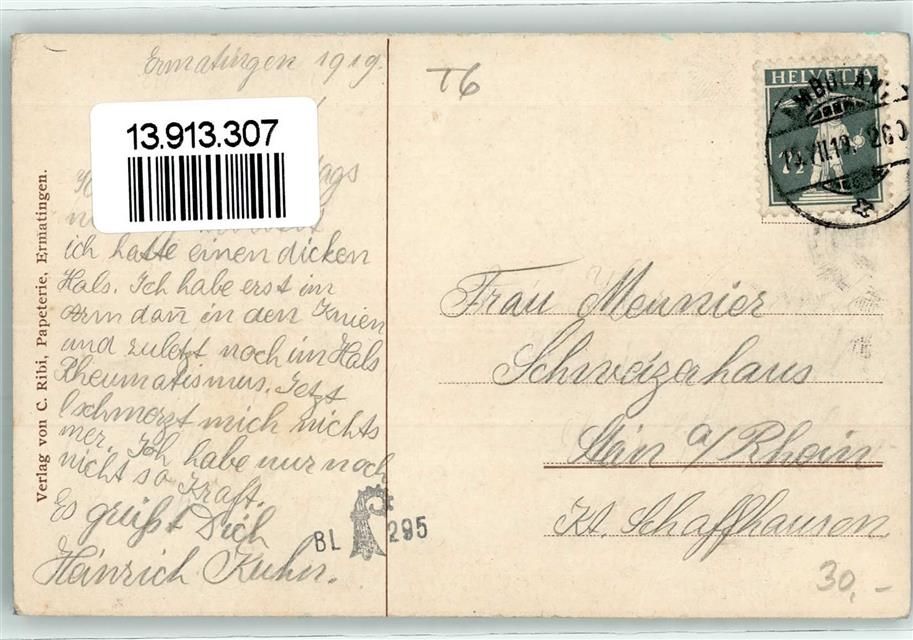 Ermatingen 1919.
13.913.307
ich hatte einen dicken
Hals. Ich habe erst im
Arm dan̄ in den Knien
und zuletzt noch im Hals
Rheumatismus. Jetzt
schmerzt mich nichts
mer. Ich habe nur noch
nicht so Kraft.
Es grüßt Dich
Heinrich Kuhn.
Verlag von C. Ribi, Papeterie, Ermatingen.
BL 295
T6
HELVETIA
7½
AMBULANT
VII.19.
Frau Meunier
Schweizerhaus
Stein a/Rhein
Kt. Schaffhausen
30,-